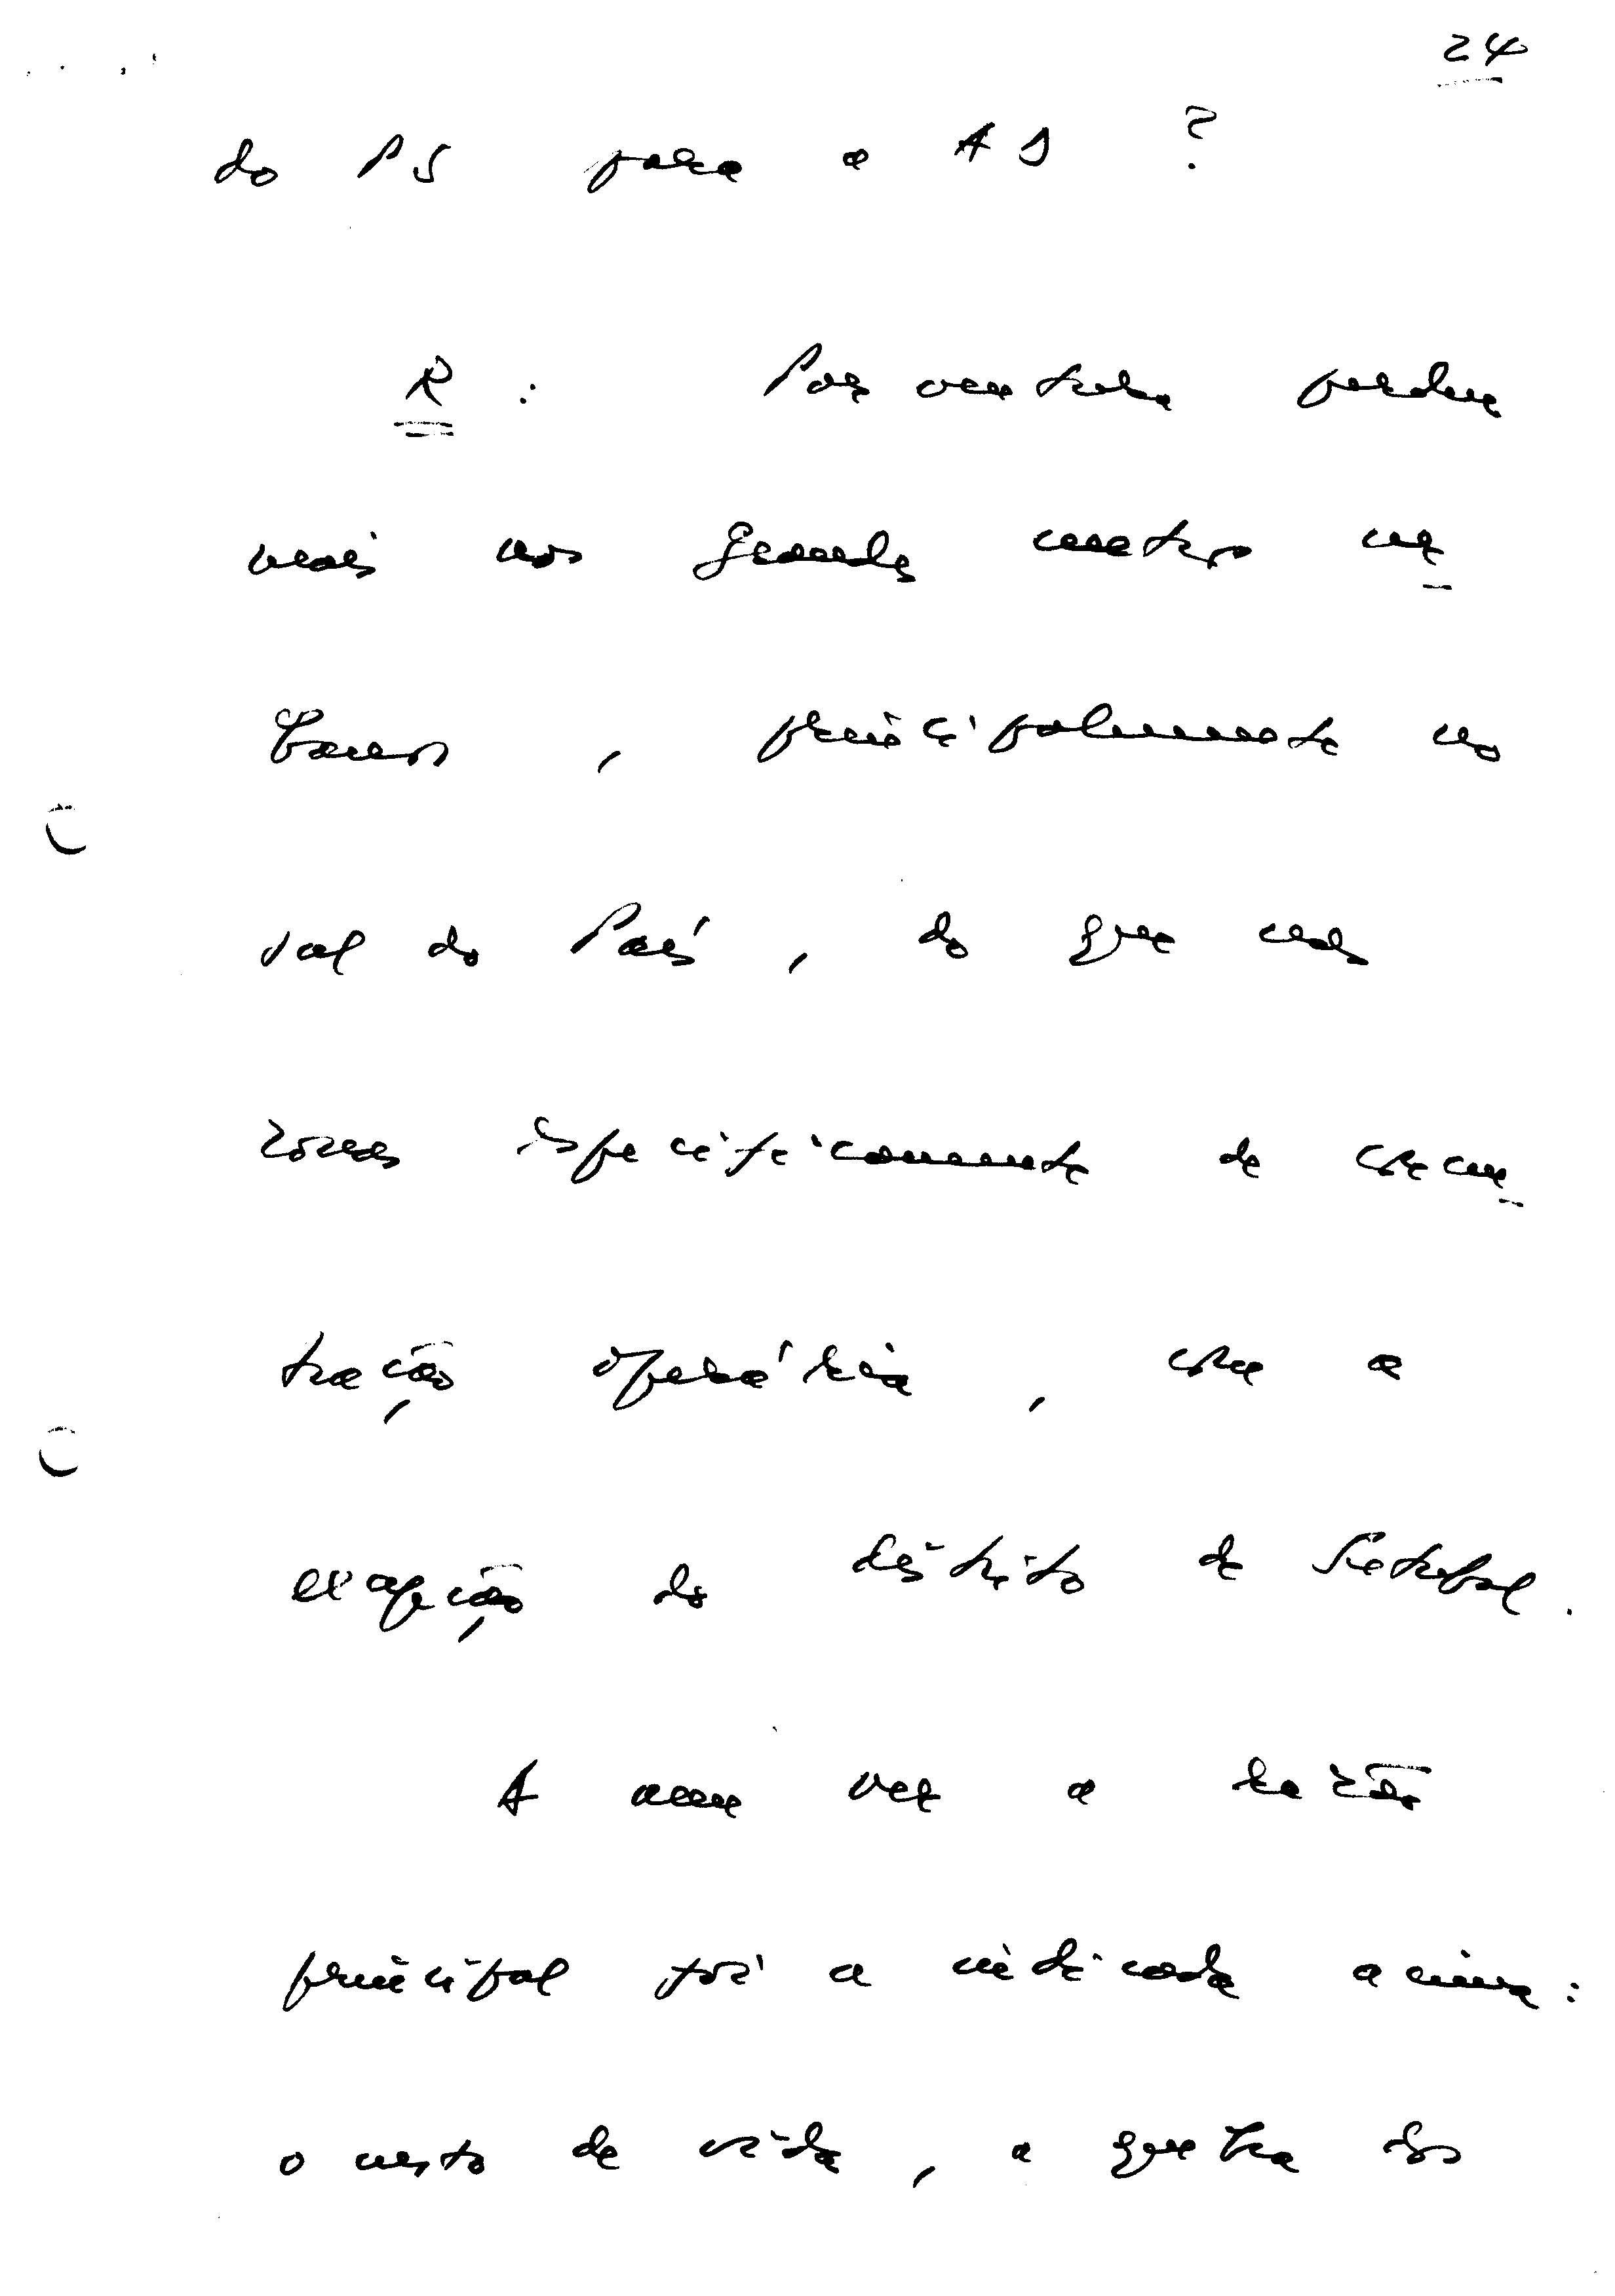 24
do PS para a AD ?
R : Por ventura perdeu
mais nos grandes centros ur
banos , principalmente no
sul do País , do que nas
zonas especificamente de concen
tração operária , com a
excepção do distrito de Setubal .
A meu ver a razão
principal foi a indicada acima :
o custo de vida , a quebra dos